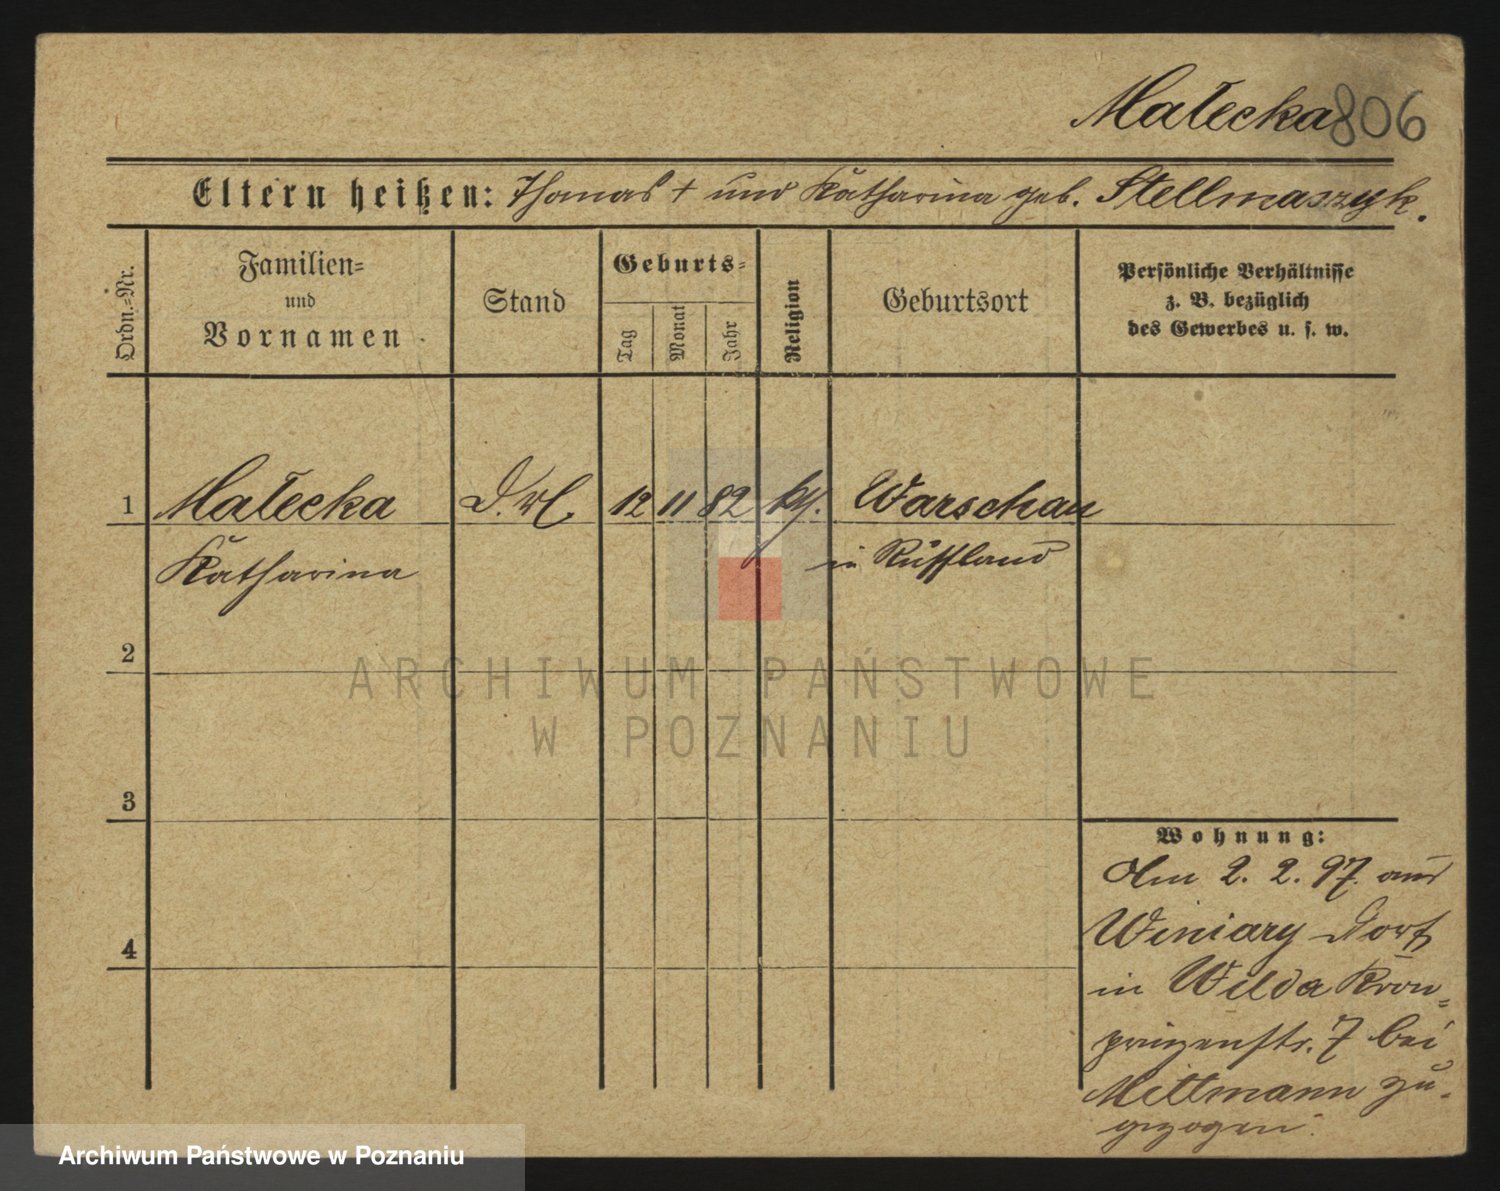 Małecka 806
Eltern heißen: Thomas † und Katharina geb. Stellmaszyk.
Ordn.=Nr.
Familien=
und
Vornamen
Stand
Geburts=
Tag
Monat
Jahr
Religion
Geburtsort
Persönliche Verhältnisse
z. B. bezüglich
des Gewerbes u. s. w.
1 Małecka 12 11 82 Warschau
Katharina in Rußland
2
3
4
Wohnung:
Am 2. 2. 97. aus
Winiary Dorf
in Wilda Kron=
prinzenstr. 7 bei
Mittmann zu=
gezogen.
ARCHIWUM PAŃSTWOWE
W POZNANIU
Archiwum Państwowe w Poznaniu